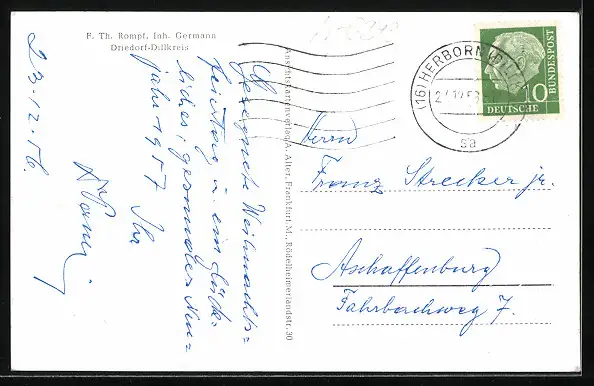 F. Th. Rompf, Inh. Germann
Driedorf-Dillkreis
23.12.56.
Gesegnete Weihnachts=
feiertag u. ein glück=
liches, gesundes Neu=
jahr 1957 Ihr
Ansichtskartenverlag A. Alter, Frankfurt M., Rödelheimerlandstr. 30
(16) HERBORN
sa
10
DEUTSCHE
BUNDESPOST
Herrn
Franz Strecker jr.
Aschaffenburg
Fahrbachweg 7.